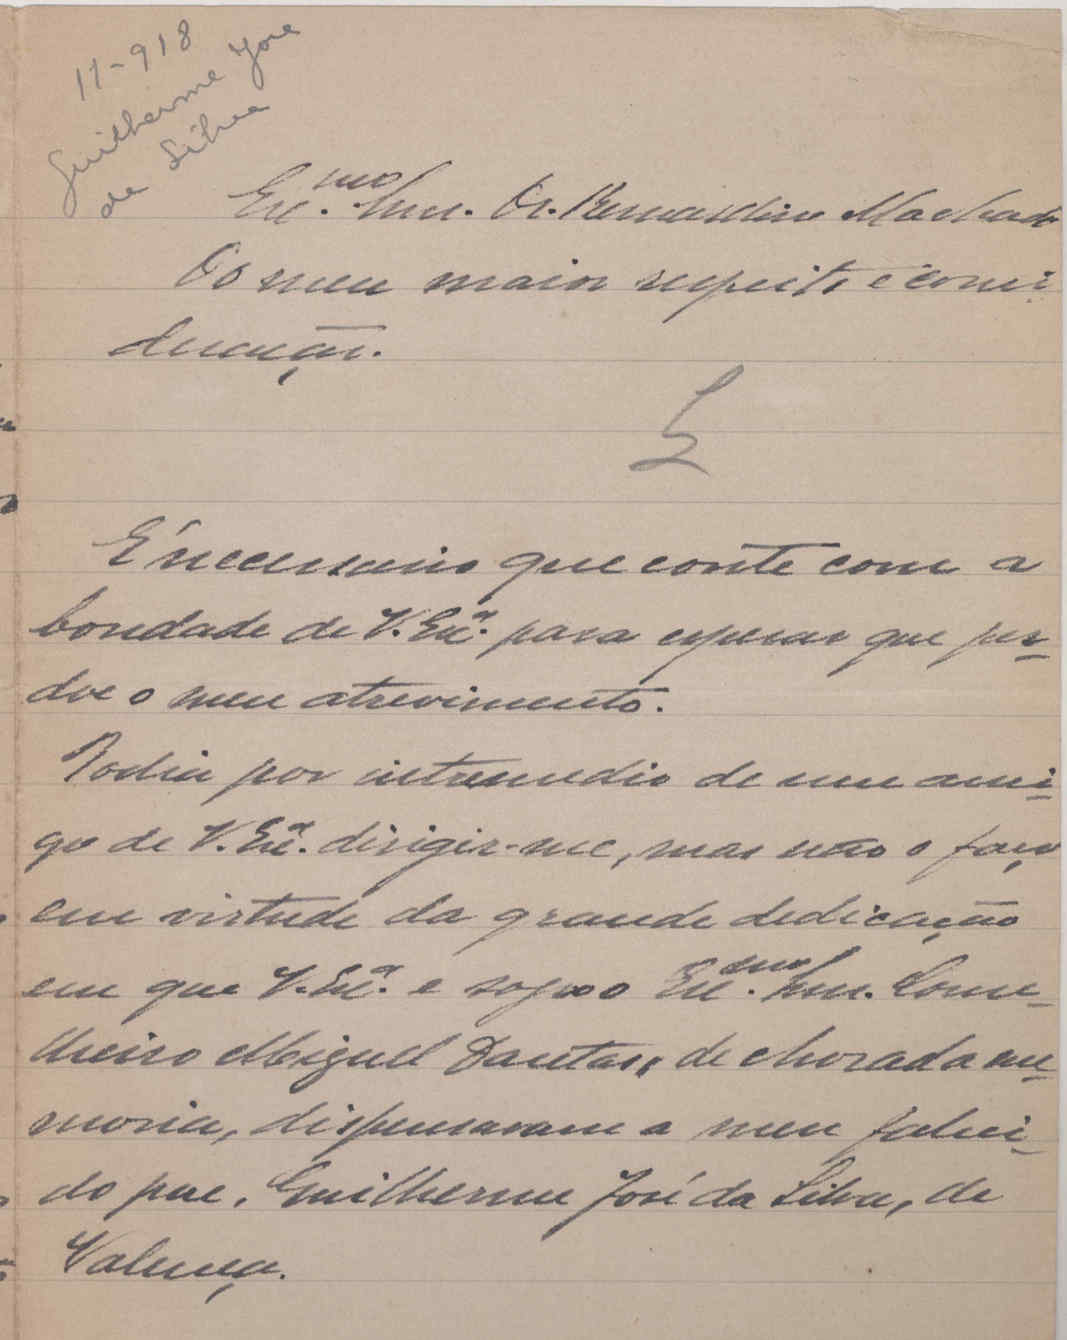 11-918
Guilherme José
da Silva
Exc.mo Snr. Dr. Bernardino Machado
Do meu maior respeito e consi-
deração.
É necessario que conte com a
bondade de V. Exc.ª para esperar que per-
doe o meu atrevimento.
Podia por intremedio de um ami-
go de V. Exc.ª dirigir-me, mas não o faço
em virtude da grande dedicação
em que V. Exc.ª e sogro o Exc.mo Snr. Conse-
lheiro Miguel Dantas, de chorada me-
moria, dispensavam a meu faleci-
do pae, Guilherme José da Silva, de
Valença.